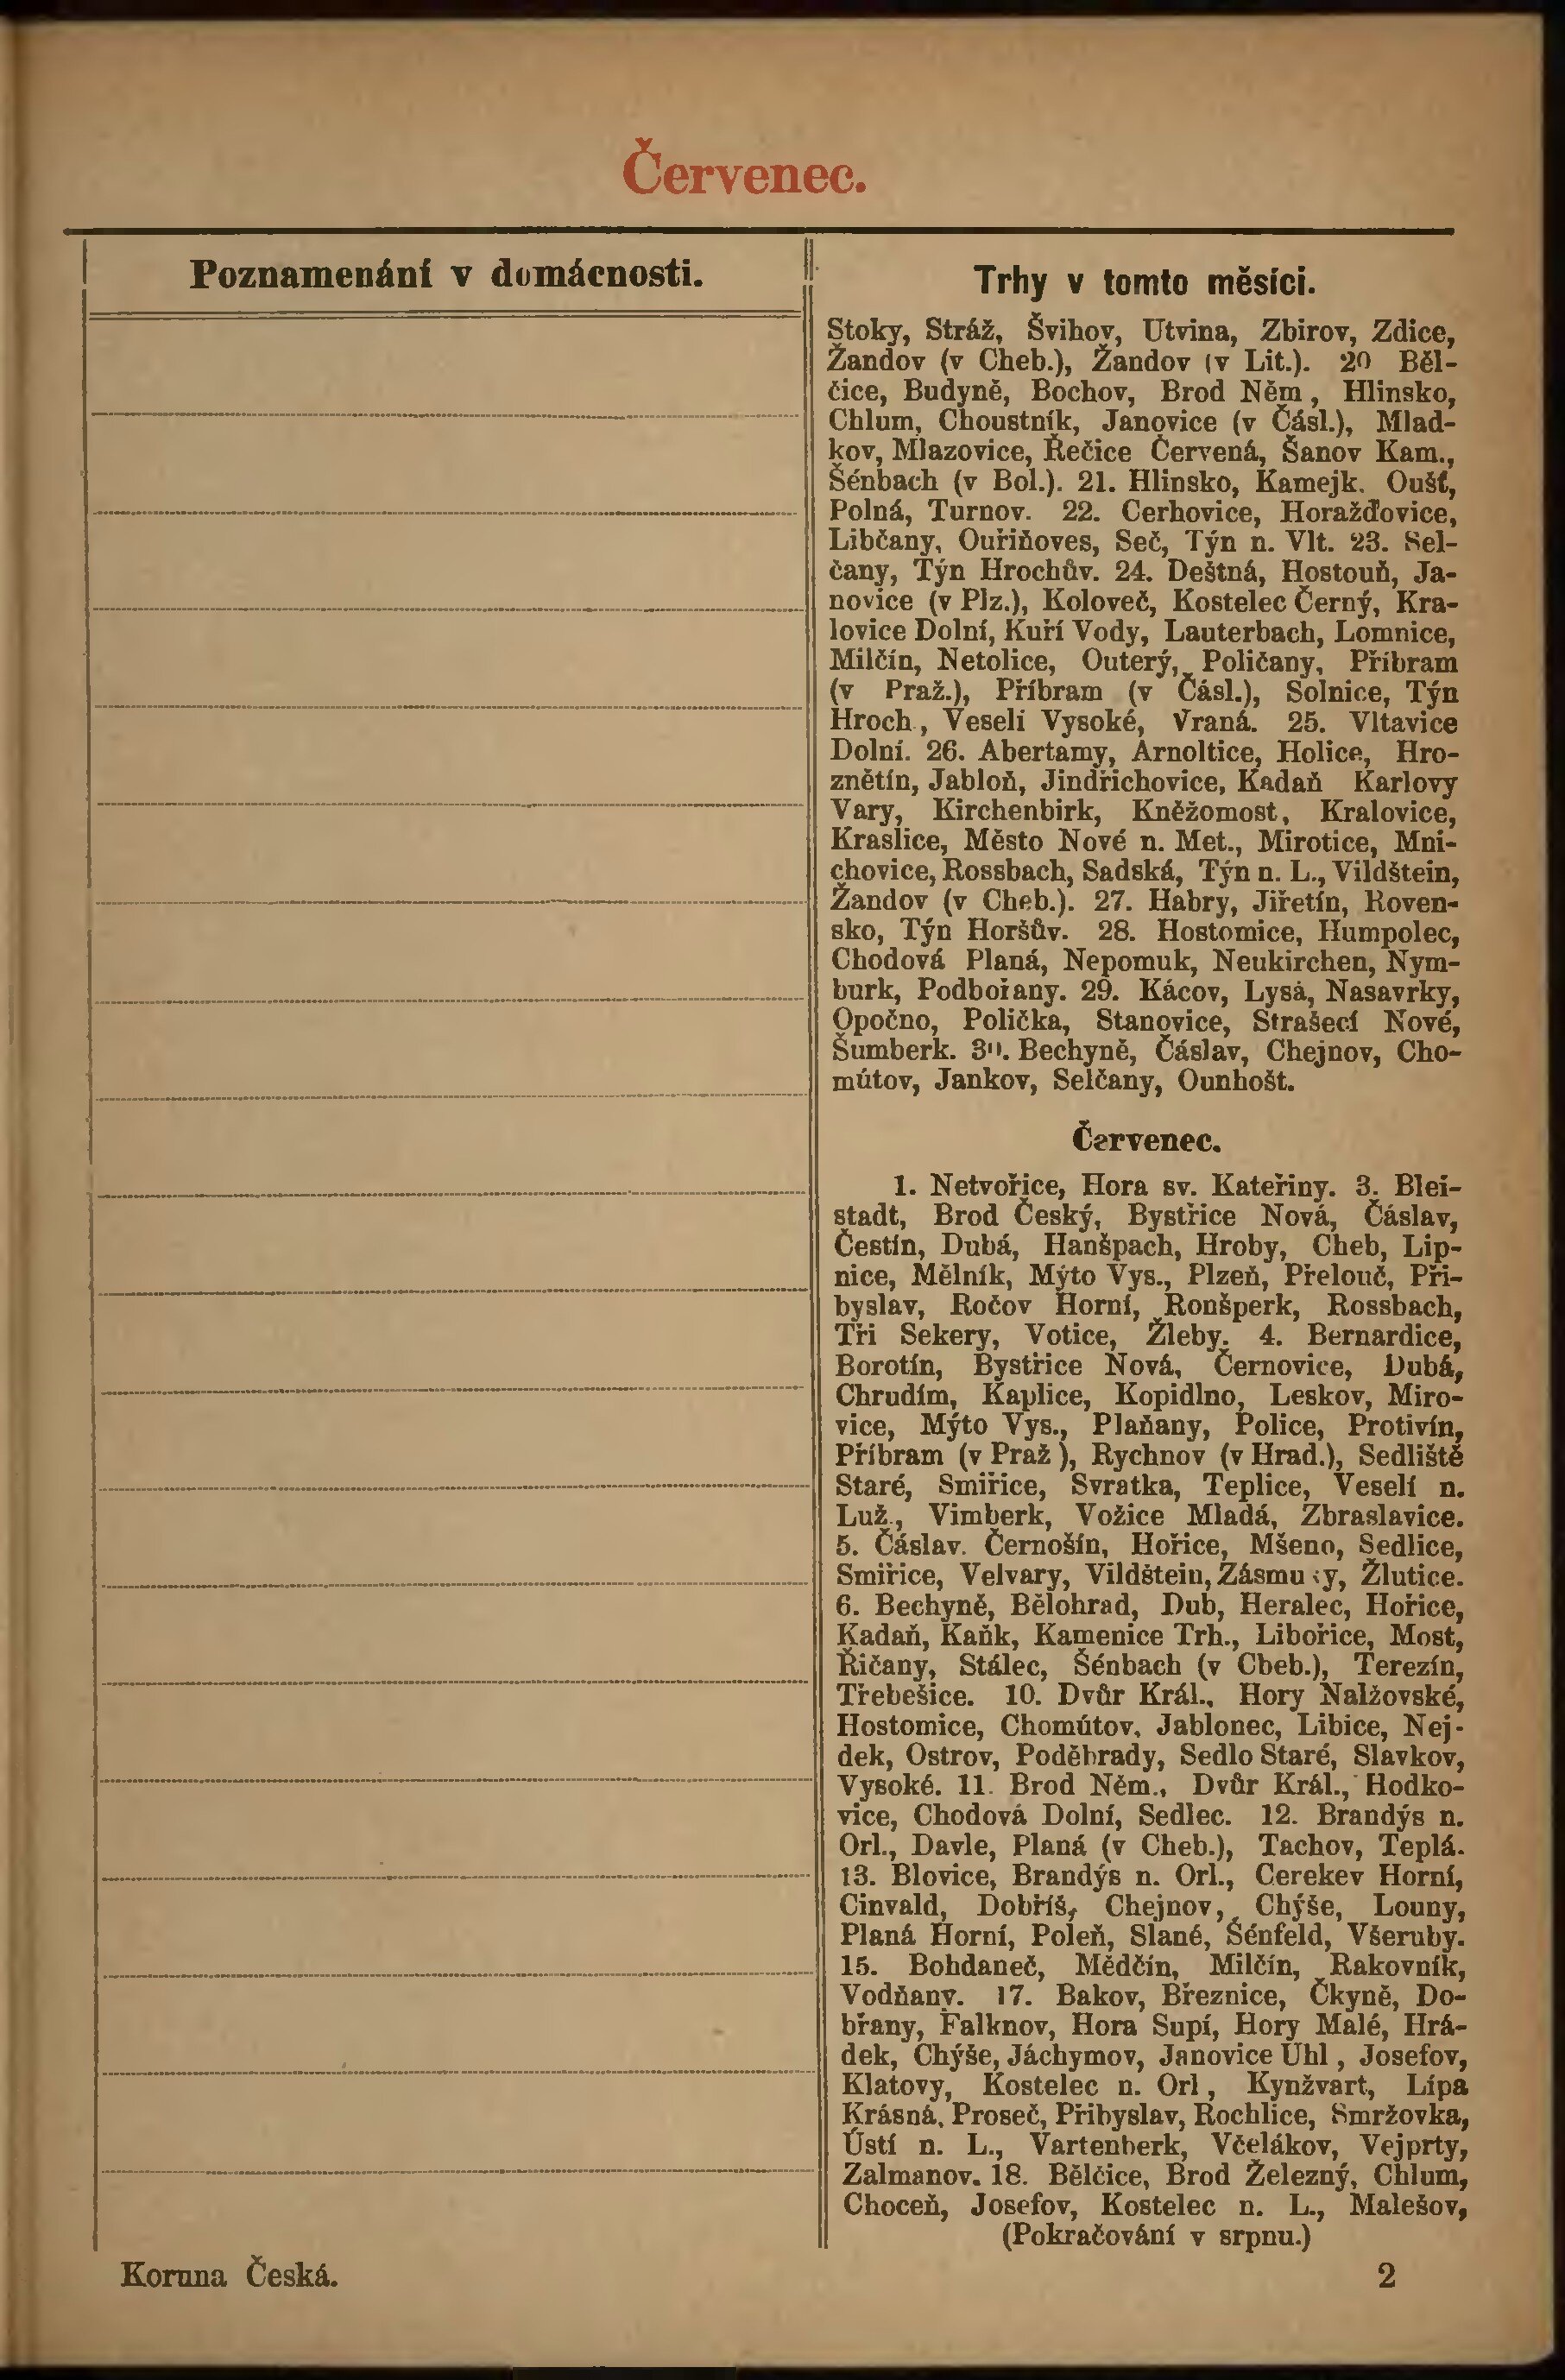 Červenec.
Poznamenání v domácnosti.
Trhy v tomto měsíci.
Stoky, Stráž, Švihov, Utvina, Zbirov, Zdice,
Žandov (v Cheb.), Žandov (v Lit.). 20 Běl-
čice, Budyně, Bochov, Brod Něm, Hlinsko,
Chlum, Choustník, Janovice (v Čásl.), Mlad-
kov, Mlazovice, Řečice Červená, Šanov Kam.,
Šénbach (v Bol.). 21. Hlinsko, Kamejk. Oušť,
Polná, Turnov. 22. Cerhovice, Horažďovice,
Libčany, Ouřiňoves, Seč, Týn n. Vlt. 23. Sel-
čany, Týn Hrochův. 24. Deštná, Hostouň, Ja-
novice (v Plz.), Koloveč, Kostelec Černý, Kra-
lovice Dolní, Kuří Vody, Lauterbach, Lomnice,
Milčín, Netolice, Outerý, Poličany, Příbram
(v Praž.), Příbram (v Čásl.), Solnice, Týn
Hroch., Veseli Vysoké, Vraná. 25. Vltavice
Dolní. 26. Abertamy, Arnoltice, Holice, Hro-
znětín, Jabloň, Jindřichovice, Kadaň Karlovy
Vary, Kirchenbirk, Kněžomost, Kralovice,
Kraslice, Město Nové n. Met., Mirotice, Mni-
chovice, Rossbach, Sadská, Týn n. L., Vildštein,
Žandov (v Cheb.). 27. Habry, Jiřetín, Roven-
sko, Týn Horšův. 28. Hostomice, Humpolec,
Chodová Planá, Nepomuk, Neukirchen, Nym-
burk, Podbořany. 29. Kácov, Lysá, Nasavrky,
Opočno, Polička, Stanovice, Strašecí Nové,
Šumberk. 30. Bechyně, Čáslav, Chejnov, Cho-
mútov, Jankov, Selčany, Ounhošt.
Červenec.
1. Netvořice, Hora sv. Kateřiny. 3. Blei-
stadt, Brod Český, Bystřice Nová, Čáslav,
Čestín, Dubá, Hanšpach, Hroby, Cheb, Lip-
nice, Mělník, Mýto Vys., Plzeň, Přelouč, Při-
byslav, Ročov Horní, Ronšperk, Rossbach,
Tři Sekery, Votice, Žleby. 4. Bernardice,
Borotín, Bystřice Nová, Černovice, Dubá,
Chrudím, Kaplice, Kopidlno, Leskov, Miro-
vice, Mýto Vys., Plaňany, Police, Protivín,
Příbram (v Praž), Rychnov (v Hrad.), Sedliště
Staré, Smiřice, Svratka, Teplice, Veselí n.
Luž., Vimberk, Vožice Mladá, Zbraslavice.
5. Čáslav. Černošín, Hořice, Mšeno, Sedlice,
Smiřice, Velvary, Vildštein, Zásmuky, Žlutice.
6. Bechyně, Bělohrad, Dub, Heralec, Hořice,
Kadaň, Kaňk, Kamenice Trh., Libořice, Most,
Řičany, Stálec, Šénbach (v Cheb.), Terezín,
Třebešice. 10. Dvůr Král., Hory Nalžovské,
Hostomice, Chomútov, Jablonec, Libice, Nej-
dek, Ostrov, Poděbrady, Sedlo Staré, Slavkov,
Vysoké. 11. Brod Něm., Dvůr Král., Hodko-
vice, Chodová Dolní, Sedlec. 12. Brandýs n.
Orl., Davle, Planá (v Cheb.), Tachov, Teplá.
13. Blovice, Brandýs n. Orl., Cerekev Horní,
Cinvald, Dobříš, Chejnov, Chýše, Louny,
Planá Horní, Poleň, Slané, Šénfeld, Všeruby.
15. Bohdaneč, Mědčín, Milčín, Rakovník,
Vodňany. 17. Bakov, Březnice, Čkyně, Do-
břany, Falknov, Hora Supí, Hory Malé, Hrá-
dek, Chýše, Jáchymov, Janovice Uhl, Josefov,
Klatovy, Kostelec n. Orl, Kynžvart, Lípa
Krásná, Proseč, Přibyslav, Rochlice, Smržovka,
Ústí n. L., Vartenberk, Včelákov, Vejprty,
Zalmanov. 18. Bělčice, Brod Železný, Chlum,
Choceň, Josefov, Kostelec n. L., Malešov,
(Pokračování v srpnu.)
Koruna Česká.
2